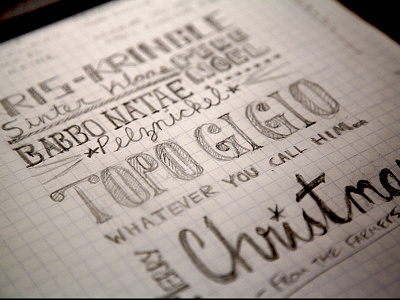 RIS-KRINGLE
Sinter Klaas PERE
NOEL
BABBO NATAE
*Pelznickel*
TOPO GIGIO
WHATEVER YOU CALL HIM...
MERRY
Christma
- FROM THE FARMERS